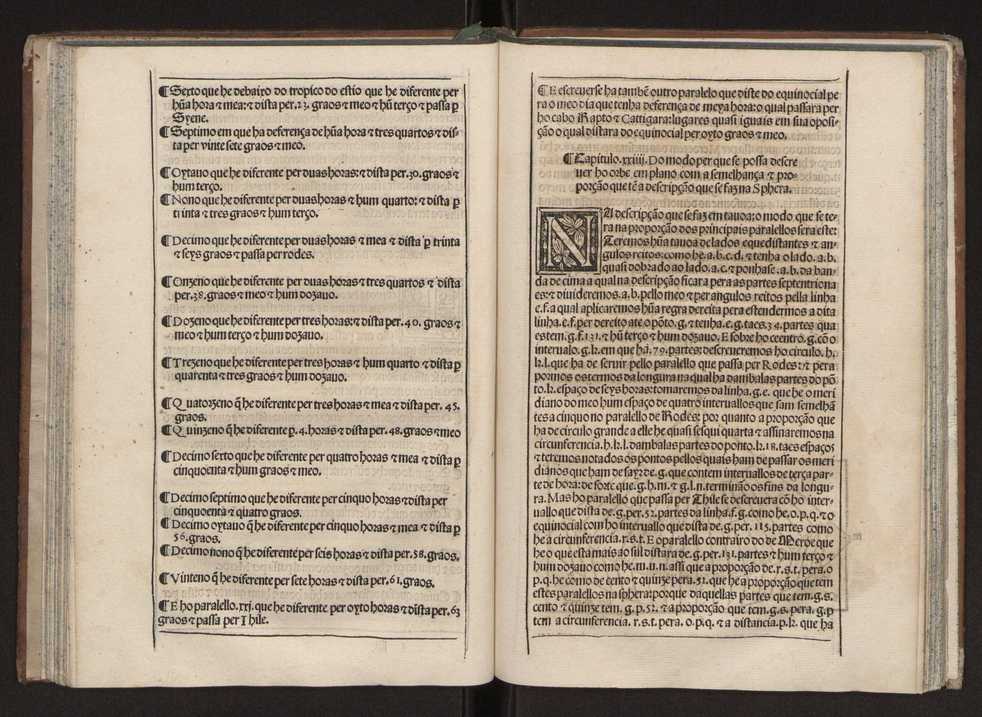 ¶ Sexto que he debaixo do tropico do estio que he diferente per
hũa hora ⁊ mea: ⁊ dista per .23. graos ⁊ meo ⁊ hũ terço ⁊ passa ꝑ
Syene.
¶ Septimo em que ha deferença de hũa hora ⁊ tres quartos ⁊ dis-
ta per vinte sete graos ⁊ meo.
¶ Oytauo que he diferente per duas horas: ⁊ dista per .30. graos ⁊
hum terço.
¶ Nono que he diferente per duas horas ⁊ hum quarto: ⁊ dista ꝑ
trinta ⁊ tres graos ⁊ hum terço.
¶ Decimo que he diferente per duas horas ⁊ mea ⁊ dista ꝑ trinta
⁊ seys graos ⁊ passa per rodes.
¶ Onzeno que he diferente per duas horas ⁊ tres quartos ⁊ dista
per .38. graos ⁊ meo ⁊ hum dozauo.
¶ Dozeno que he diferente per tres horas: ⁊ dista per .40. graos ⁊
meo ⁊ hum terço ⁊ hum dozauo.
¶ Trezeno que he diferente per tres horas ⁊ hum quarto ⁊ dista ꝑ
quarenta ⁊ tres graos ⁊ hum dozauo.
¶ Quatorzeno q̃ he diferente per tres horas ⁊ mea ⁊ dista per .45.
graos.
¶ Quinzeno q̃ he diferente ꝑ .4. horas ⁊ dista per .48. graos ⁊ meo
¶ Decimo serto que he diferente per quatro horas ⁊ mea ⁊ dista ꝑ
cinquoenta ⁊ hum graos ⁊ meo.
¶ Decimo septimo que he diferente per cinquo horas ⁊ dista per
cinquoenta ⁊ quatro graos.
¶ Decimo oytauo q̃ he diferente per cinquo horas ⁊ mea ⁊ dista ꝑ
56. graos.
¶ Decimo nono q̃ he diferente per seis horas ⁊ dista per .58. graos.
¶ Vinteno q̃ he diferente per sete horas ⁊ dista per .61. graos.
¶ E ho paralello .xxj. que he diferente per oyto horas ⁊ dista per .63
graos ⁊ passa per Thile.
¶ E escreuerse ha tambẽ outro paralelo que diste do equinocial pe
ra o meo dia que tenha deferença de meya hora: o qual passara per
ho cabo Rapto ⁊ Cattigara: lugares quasi iguais em sua oposi-
ção o qual distara do equinocial per oyto graos ⁊ meo.
¶ Capitulo .xxiiij. Do modo per que se possa descre
uer ho orbe em plano com a semelhança ⁊ pro-
porção que tẽ a descripção que se faz na Sphera.
NA descripção que se faz em tauoa: o modo que se te-
ra na proporção dos principais parallellos sera este:
Teremos hũa tauoa de lados equedistantes ⁊ an-
gulos reitos: como he. a. b. c. d. ⁊ tenha o lado. a. b.
quasi dobrado ao lado. a. c. ⁊ ponhase. a. b. da ban-
da de cima a qual na descripção ficara pera as partes septentriona
es: ⁊ diuideremos. a. b. pello meo ⁊ per angulos reitos pella linha
e. f. a qual aplicaremos hũa regra dereita pera estendermos a dita
linha. e. f. per dereito ate o põto. g. ⁊ tenha. e. g. taes. 34. partes qua
es tem. g. f. 131. ⁊ hũ terço ⁊ hum dozauo. E sobre ho centro. g. cõ o
interualo. g. k. em que hã. 79. partes: descreueremos ho circulo. h.
k. l. que ha de seruir pello parallelo que passa per Rodes: ⁊ pera
pormos os termos da longura na qual ha dambalas partes do põ
to. k. espaço de seys horas: tomaremos da linha. g. e. que he o meri
diano do meo hum espaço de quatro interuallos que sam semelhã
tes a cinquo no paralelo de Rodes: por quanto a proporção que
ha de circulo grande a elle he quasi sesqui quarta ⁊ assinaremos na
circunferencia. h. k. l. dambalas partes do ponto. k. 18. taes espaços
⁊ teremos notados os pontos pellos quais ham de passar os meri
dianos que ham de sayr de. g. que contem interuallos de terça par-
te de hora: de sorte que. g. h. m. ⁊ g. l. n. terminão os fins da longu-
ra. Mas ho parallelo que passa per Thile se descreuera cõ ho inter-
uallo que dista de. g. per. 52. partes da linha. f. g. como he. o. p. q. ⁊ o
equinocial com ho interuallo que dista de. g. per. 115. partes como
he a circunferencia. r. s. t. E o paralello contrairo do de Meroe que
he o que està mais ao sul distara de. g. per. 131. partes ⁊ hum terço ⁊
hum dozauo como he. m. u. n. assi que a proporção de. r. s. t. pera. o
p. q. he como de cento ⁊ quinze pera. 52. que he a proporção que tem
estes parallelos na sphera: porque daquellas partes que tem. g. s.
cento ⁊ quinze tem. g. p. 52. ⁊ a proporção que tem. g. s. pera. g. p
tem a circunferencia. r. s. t. pera. o. p. q. ⁊ a distancia. p. k. que ha